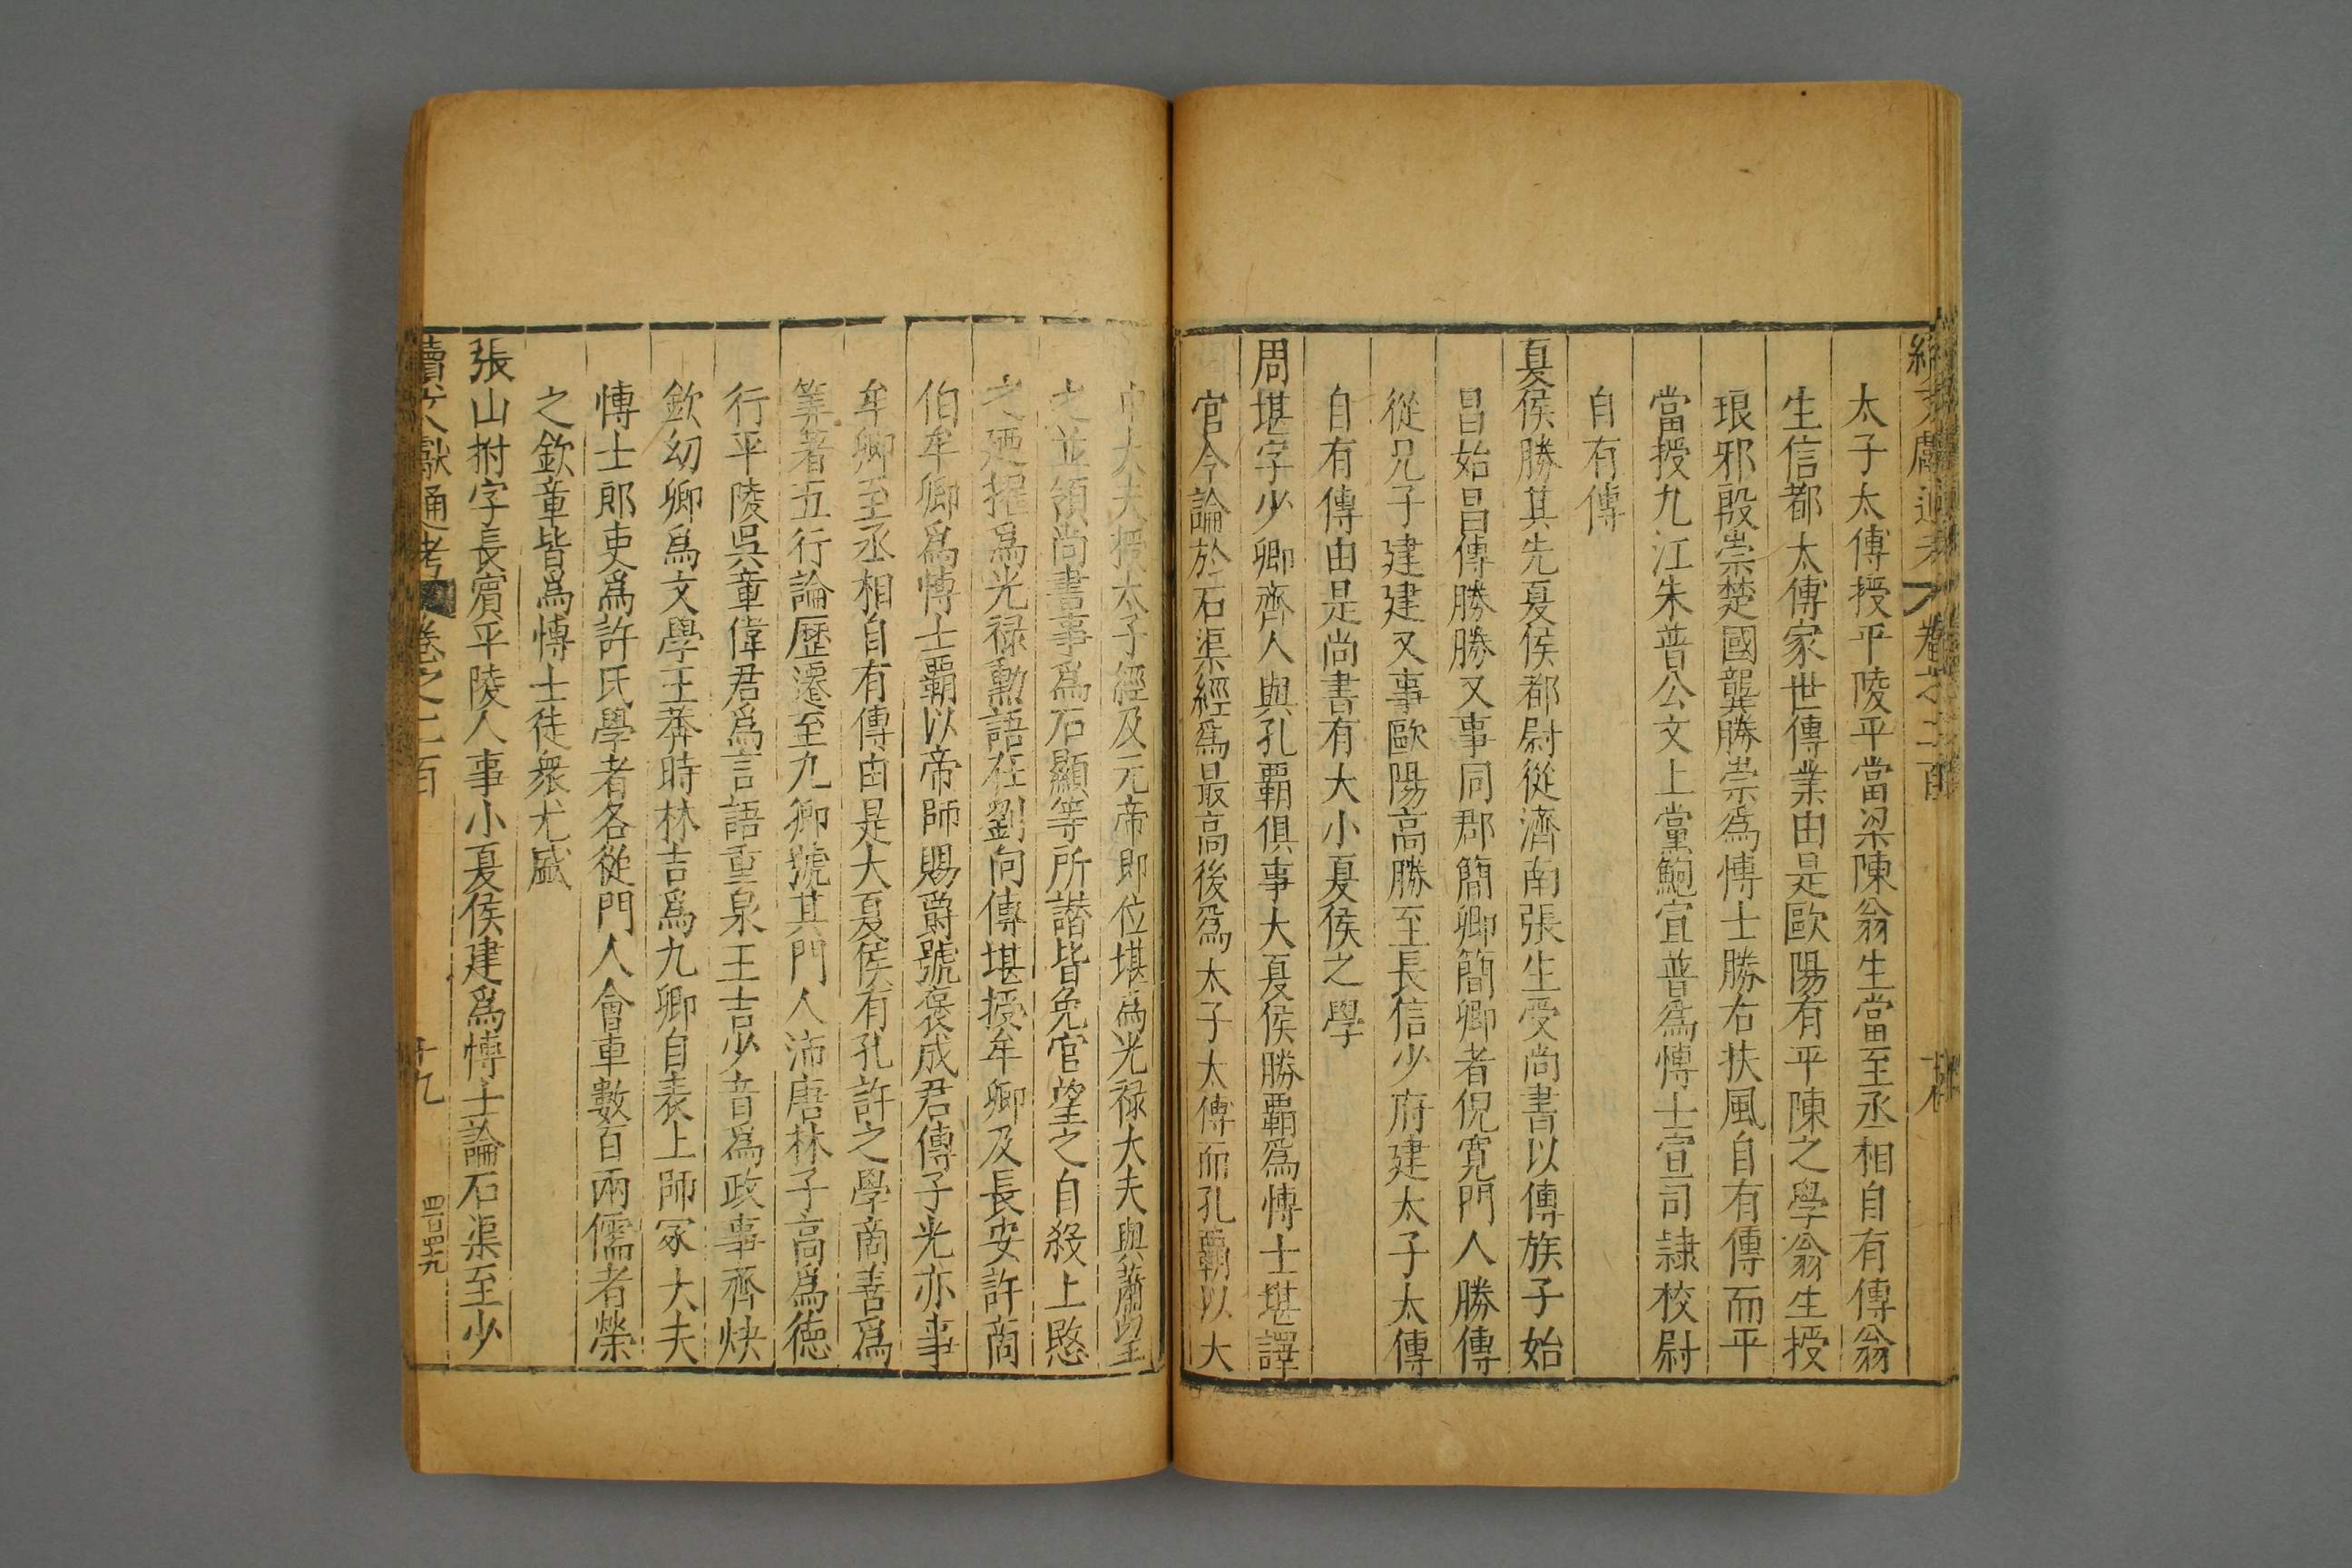 太子太傳授平陵平當梁陳翁生當至丞相自有傳翁
生信都太傳家世傳業由是歐陽有平陳之學翁生授
琅邪殷崇楚國龔勝崇爲愽士勝右扶風自有傳而平
當授九江朱普公文上黨鮑宣普爲愽士宣司隷校尉
自有傳
夏侯勝其先夏侯都尉從濟南張生受尚書以傳族子始
昌始昌傳勝勝又事同郡簡卿簡卿者倪寛門人勝傳
從兄子建建又事歐陽高勝至長信少府建太子太傳
自有傳由是尚書有大小夏侯之學
周堪字少卿齊人與孔覇俱事大夏侯勝覇爲愽士堪譯
官令論於石渠經爲最高後爲太子太傳而孔覇以大
中大夫授太子經及元帝即位堪爲光禄大夫與蕭望
之並領尚書事爲石顯等所譖皆免官望之自殺上愍
之廼擢爲光禄勳語在劉向傳堪授牟卿及長安許商
伯牟卿爲愽士覇以帝師賜爵號褒成君傳子光亦事
牟卿至丞相自有傳由是大夏侯有孔許之學商善爲
筭著五行論歴遷至九卿號其門人沛唐林子高爲徳
行平陵吳章偉君爲言語重泉王吉少音爲政事齊炔
欽幼卿爲文學王莽時林吉爲九卿自表上師冢大夫
愽士郎吏爲許氏學者各從門人會車數百兩儒者榮
之欽章皆爲愽士徒衆尤盛
張山拊字長賔平陵人事小夏侯建爲愽士論石渠至少
續文獻通考 卷之二百 十九 四百四十九